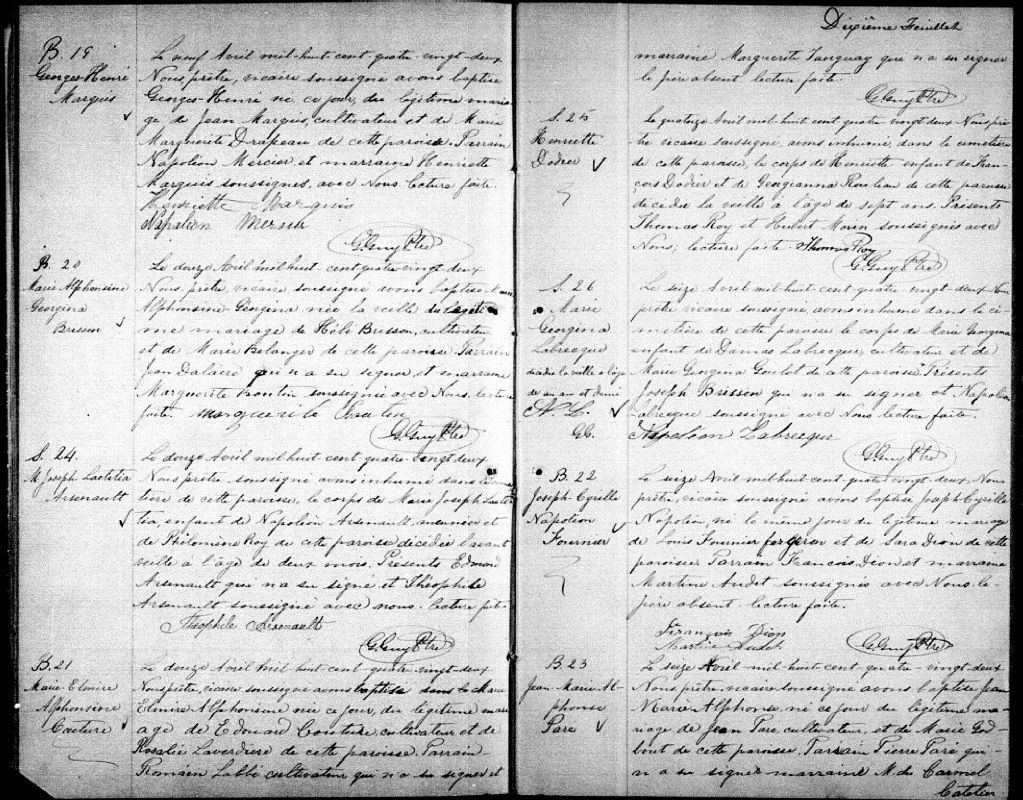 B. 19
Georges-Henri
Marquis
Le neuf Avril mil-huit cent quatre-vingt-deux
Nous prêtre, vicaire soussigné avons baptisé
Georges-Henri né ce jour, du légitime maria-
ge de Jean Marquis, cultivateur et de Marie
Marguerite Drapeau de cette paroisse. Parrain
Napoléon Mercier, et marraine Henriette
Marquis soussignés, avec Nous. lecture faite.
Henriette Marquis
Napoléon Mersier
G. Guy Ptre
B. 20
Marie Alphonsine
Georgina
Brisson
Le douze Avril mil huit cent quatre vingt deux
Nous, prêtre, vicaire soussigné avons baptisé Marie
Alphonsine Géorgina née la veille du légiti-
me mariage de Brisson, cultivateur
et de Marie Belanger de cette paroisse Parrain
Jean qui n'a su signer, et marraine
Marguerite soussignée avec Nous. lecture
faite. marguerite
G. Guy Ptre
S. 24.
M. Joseph Laetitia
Arsenault
Le douze Avril mil huit cent quatre vingt deux
Nous prêtre soussigné avons inhumé dans le cime-
tière de cette paroisse, le corps de Marie Joseph Laeti-
tia, enfant de Napoléon Arsenault, meunier et
de Philomène Roy de cette paroisse décédée l'avant
veille à l'âge de deux mois. Présents Edmond
Arsenault qui n'a su signé et Théophile
Arsenault soussigné avec nous. lecture fite.
Théophile Arsenault
G. Guy Ptre
B. 21
Marie-Elmire
Alphonsine
Couture
Le douze Avril mil huit cent quatre-vingt-deux
Nous prêtre, vicaire soussigné avons baptisé Marie
Elmire Alphonsine née ce jour, du légitime mari-
age de Edouard Couture cultivateur et de
Rosalie Laverdière de cette paroisse. Parrain
Romain Labbé cultivateur qui n'a su signer et
Dixième Feuillet
marraine Marguerite Tanguay que n'a su signer
le père absent lecture faite.
G. Guy Ptre
S. 25
Henriette
Dodier
Le quatorze Avril mil huit cent quatre vingt deux Nous prê-
tre vicaire soussigné, avons inhumé, dans le cimetière
de cette paroisse, le corps de Henriette enfant de Fran-
çois Dodier et de Georgianna Rouleau de cette paroisse
décédée la veille à l'âge de sept ans. Présents
Thomas Roy et Hubert Morin soussignés avec
Nous; lecture faite. Thomas Roy
G. Guy Ptre
S. 26
Marie
Georgina
Labrecque
décédée la veille à l'âge
de un an et demi
N. L.
GG.
Le seize Avril mil-huit cent quatre vingt-deux Nous
prêtre vicaire soussigné, avons inhumé dans le ci-
metière de cette paroisse le corps de Marie Georgina
enfant de Damas Labrecque, cultivateur et de
Marie Georgina Goulet de cette paroisse. Présents
Joseph Brisson qui n'a su signer et Napoléon
Labrecque soussigné avec Nous. lecture faite.
Napoléon Labrecque
G. Guy Ptre
B. 22
Joseph-Cyrille
Napoléon
Fournier
Le seize Avril mil-huit cent quatre vingt deux, Nous
prêtre, vicaire soussigné avons baptisé Joseph Cyrille
Napoléon, né le même jour du légitime mariage
de Louis Fournier forgeron et de Sara Dion de cette
paroisse Parrain Francois Dion et marraine
Martine Audet soussignés avec Nous. le
père absent. lecture faite.
François Dion
Martine Audet
G. Guy Ptre
B. 23
Jean-Marie Al-
phonse
Paré
Le seize Avril mil-huit cent quatre-vingt-deux
Nous prêtre, vicaire soussigné avons baptisé Jean
Marie Alphonse, né ce jour du légitime ma-
riage de Jean Paré cultivateur, et de Marie God-
bout de cette paroisse, Parrain Pierre Paré qui-
n'a su signer marraine M. du Carmel